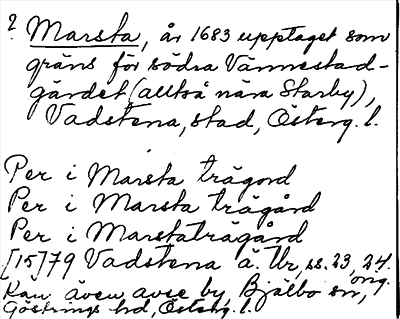 ? Marsta, år 1683 upptaget som
gräns för södra Vännestad-
gärdet (alltså nära Starby),
Vadstena, stad, Österg. l.
Per i Marsta trägord
Per i Marsta trägård
Per i Marstaträgård
[15]79 Vadstena ä. Ur, ss. 23, 24.
orig.
Kan även avse by, Bjälbo sn,
Göstrings hd, Österg. l.